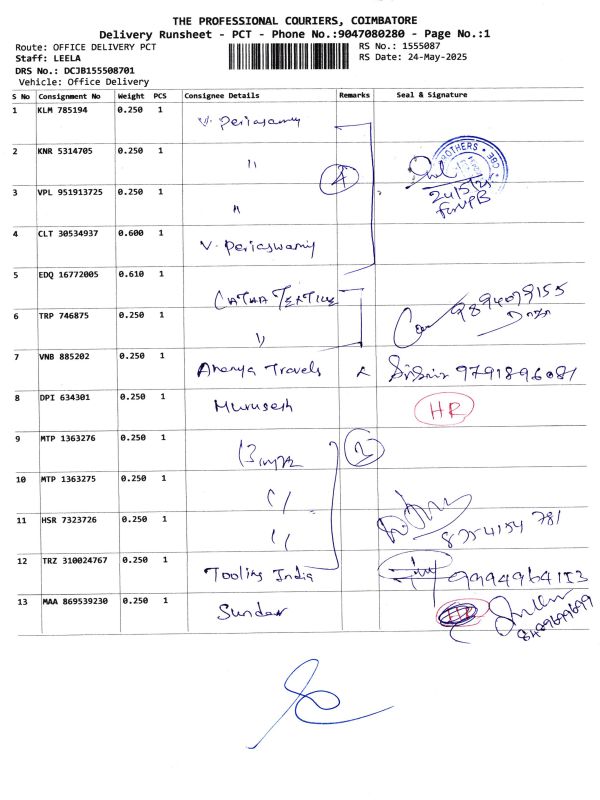 THE PROFESSIONAL COURIERS, COIMBATORE
Delivery Runsheet - PCT - Phone No.:9047080280 - Page No.:1
Route: OFFICE DELIVERY PCT
RS No.: 1555087
Staff: LEELA
RS Date: 24-May-2025
DRS No.: DCJB155508701
Vehicle: Office Delivery
S No Consignment No Weight PCS Consignee Details Remarks Seal & Signature
1 KLM 785194 0.250 1 V. Periasamy
2 KNR 5314705 0.250 1 "
BROTHERS CBE
24/5/25
For VPB
3 VPL 951913725 0.250 1 "
4 CLT 30534937 0.600 1 V. Periaswamy
5 EDQ 16772005 0.610 1
6 TRP 746875 0.250 1 " 9894079155
7 VNB 885202 0.250 1 Ananya Travels 9791896081
8 DPI 634301 0.250 1 Murugesh HR
9 MTP 1363276 0.250 1
10 MTP 1363275 0.250 1 "
11 HSR 7323726 0.250 1 " 8754154781
12 TRZ 310024767 0.250 1 Tooling India 9994964113
13 MAA 869539230 0.250 1 Sundar